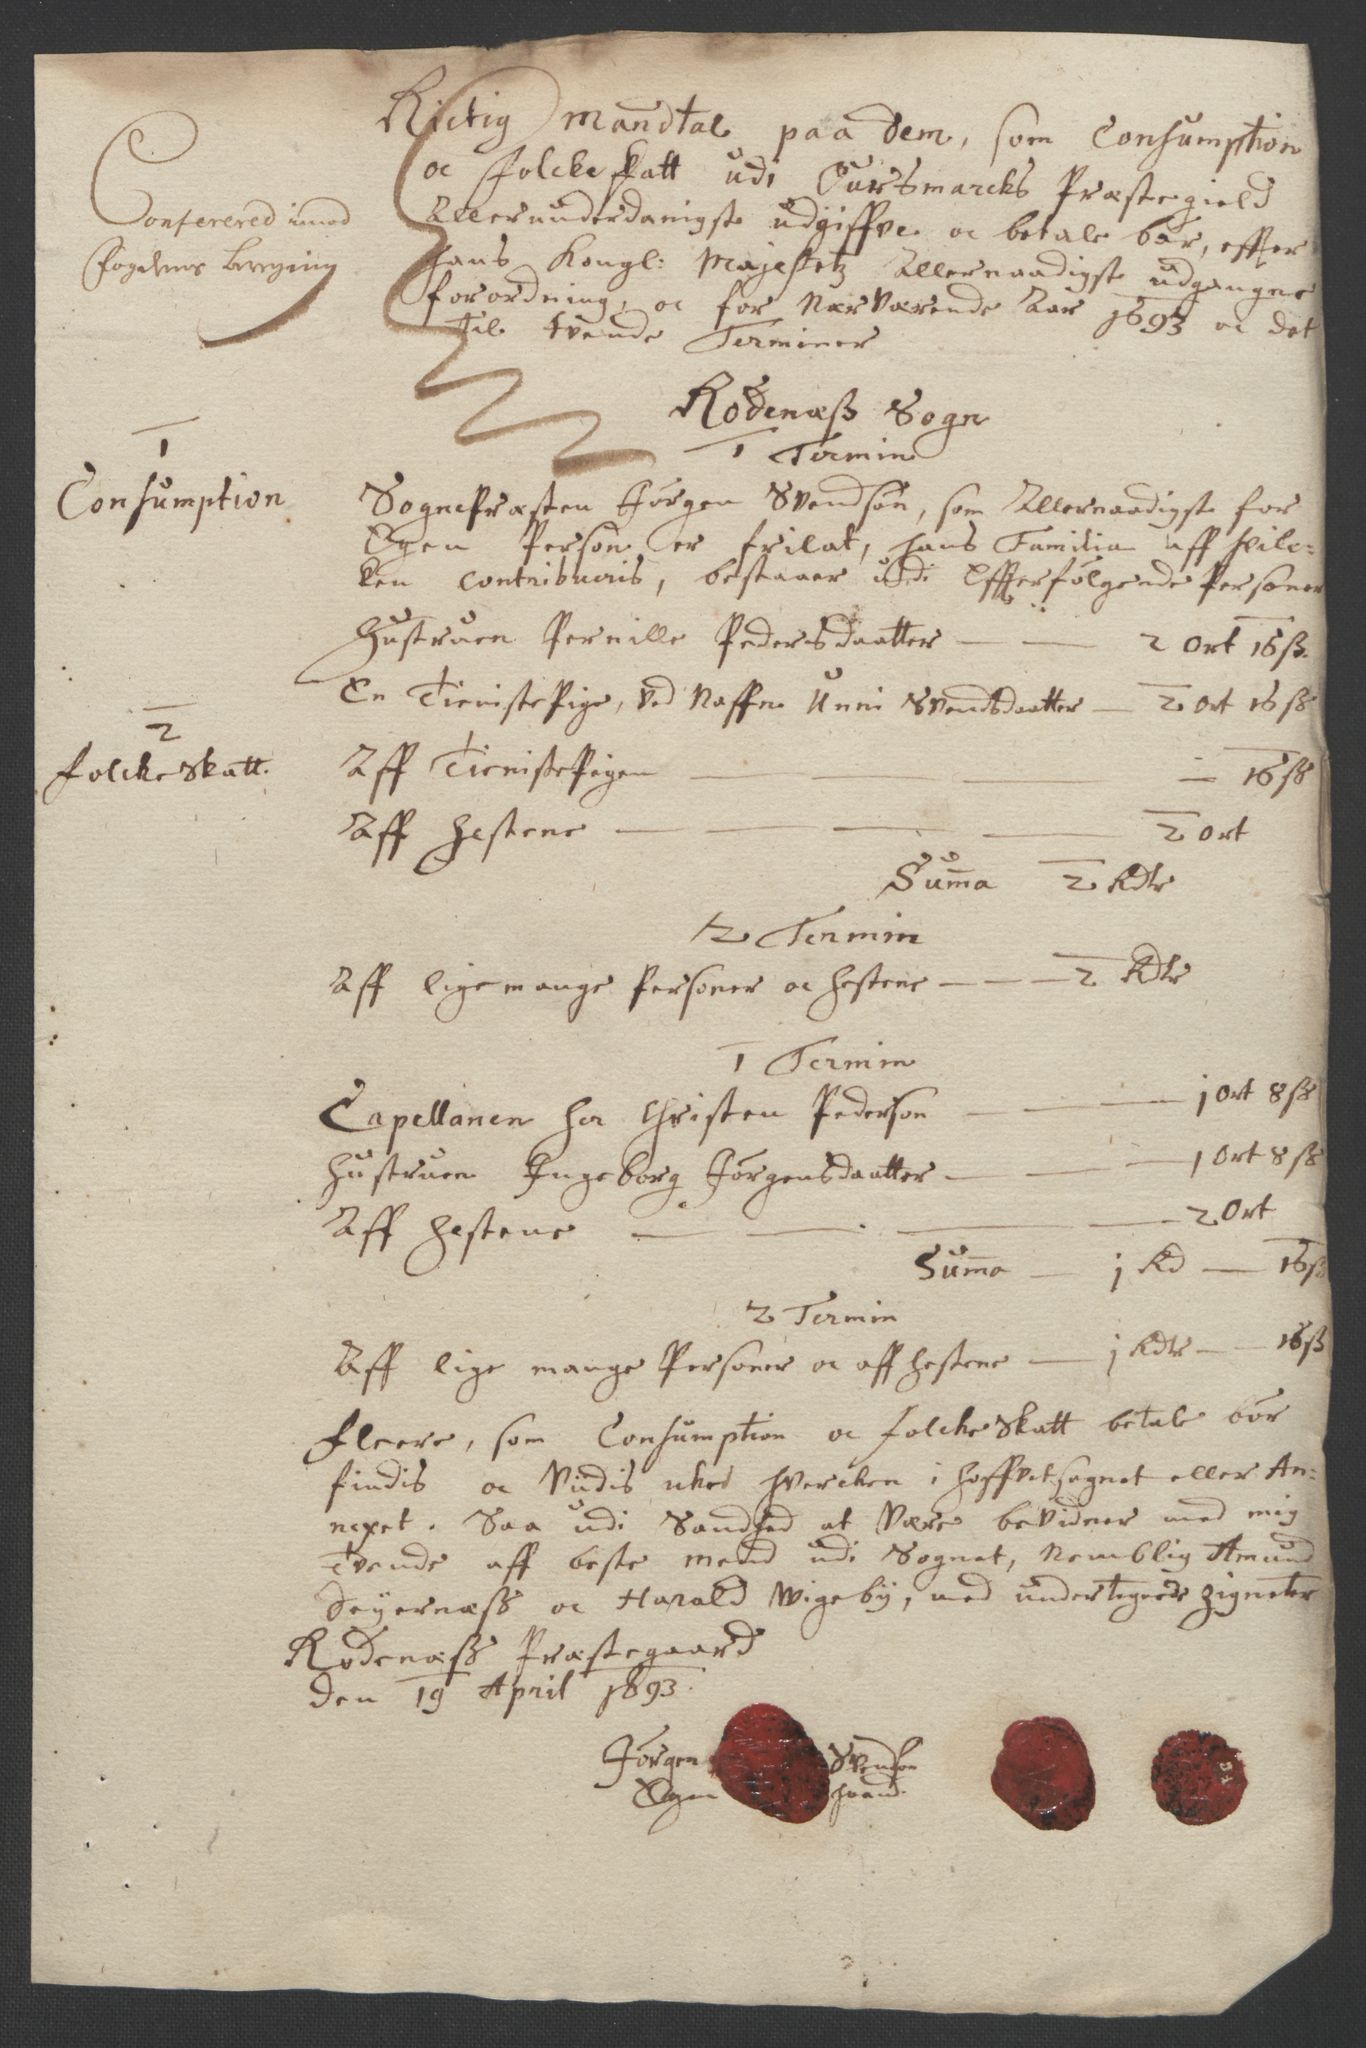 Rictig Mandtal paa dem, som Consumption
oc Folcke skatt udi Ourßmarcks Præstegield
Allerunderdanigste udgiffve oc betale bør, effter
Hans Kongl: Mayestetz Allernaadigste udgangne
forordning, oc for Nærværende Aar 1693 oc det
til tvende Terminer
Conferered imod
Fogdens
Rødenæss Sogn
1 Termin
1
Consumption
SognePræsten Jørgen Svendsøn, som Allernaadigste for
Egen Person er frilat, hans Familia aff hvil:
ken contribueris, bestaaer udi Effterfølgende Personer
Hustruen Pernille Pedersdaatter — — 2 Ort 16 ß.
En TienistePige, ved Naffn Unni Svendsdaatter — 2 Ort 16 ß
2
Folcke skatt.
Aff TienistePigen — — — — 16 ß
Aff Hestene — — — — 2 Ort
Summa 2 Rdlr
2 Termin
Aff lige mange Personer oc hestene — — — 2 Rdlr
1 Termin
Capellanen her Christen Pederson — — — 1 Ort 8 ß
Hustruen Ingeborg Jørgensdaatter — — — 1 Ort 8 ß
Aff hestene — — — — 2 Ort
Summa — 1 Rd — 16 ß
2 Termin
Aff lige mange Personer oc aff hestene — 1 Rdlr — 16 ß
Fleere, som Consumption oc Folcke skatt betale bør
findis oc vidis icke hvercken i hoffvetsognet eller An:
nexet. Saa udi Sandhed at være bevidner med mig
Tvende aff beste mend udi Sognet, Nemblig Amund
Seyernæss oc Harald Wigeby, med undertegnede Zigneter
Rødenæss Præstegaard
den 19 April 1693.
Jørgen Svendsøn
Egen haand.